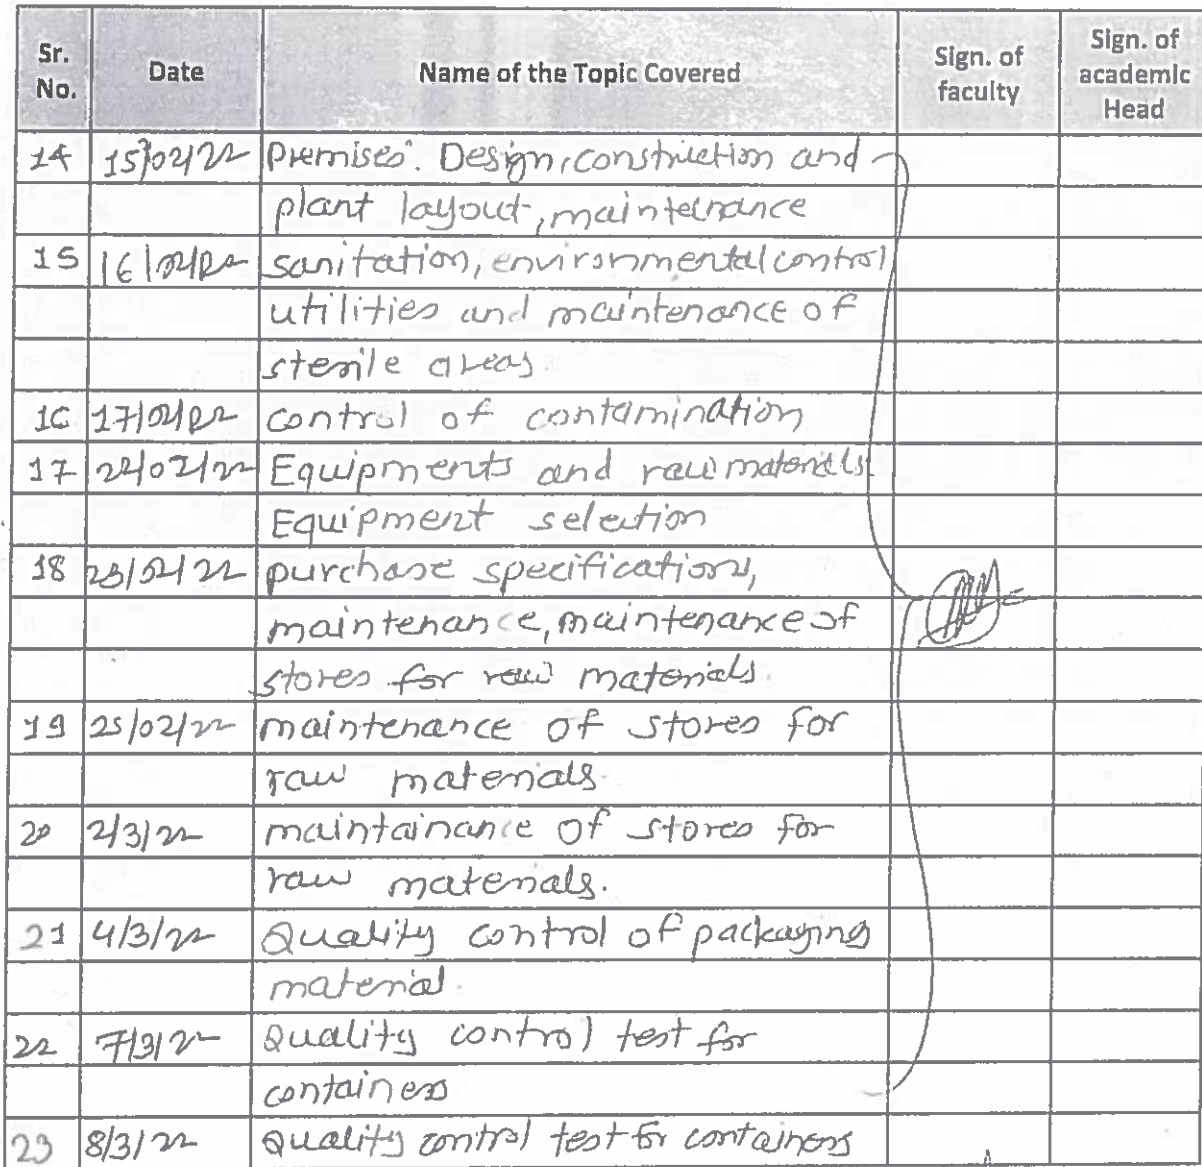 Sr. No. Date Name of the Topic Covered Sign. of faculty Sign. of academic Head
14 15/02/22 Premises: Design, construction and
plant layout, maintenance
15 16/02/22 sanitation, environmental control
utilities and maintenance of
sterile areas.
16 17/02/22 control of contamination
17 22/02/22 Equipments and raw materials.
Equipment selection
18 23/02/22 purchase specifications,
maintenance, maintenance of
stores for raw materials.
19 25/02/22 maintenance of stores for
raw materials.
20 2/3/22 maintainance of stores for
raw materials.
21 4/3/22 Quality control of packaging
material.
22 7/3/22 Quality control test for
containers
23 8/3/22 Quality control test for containers